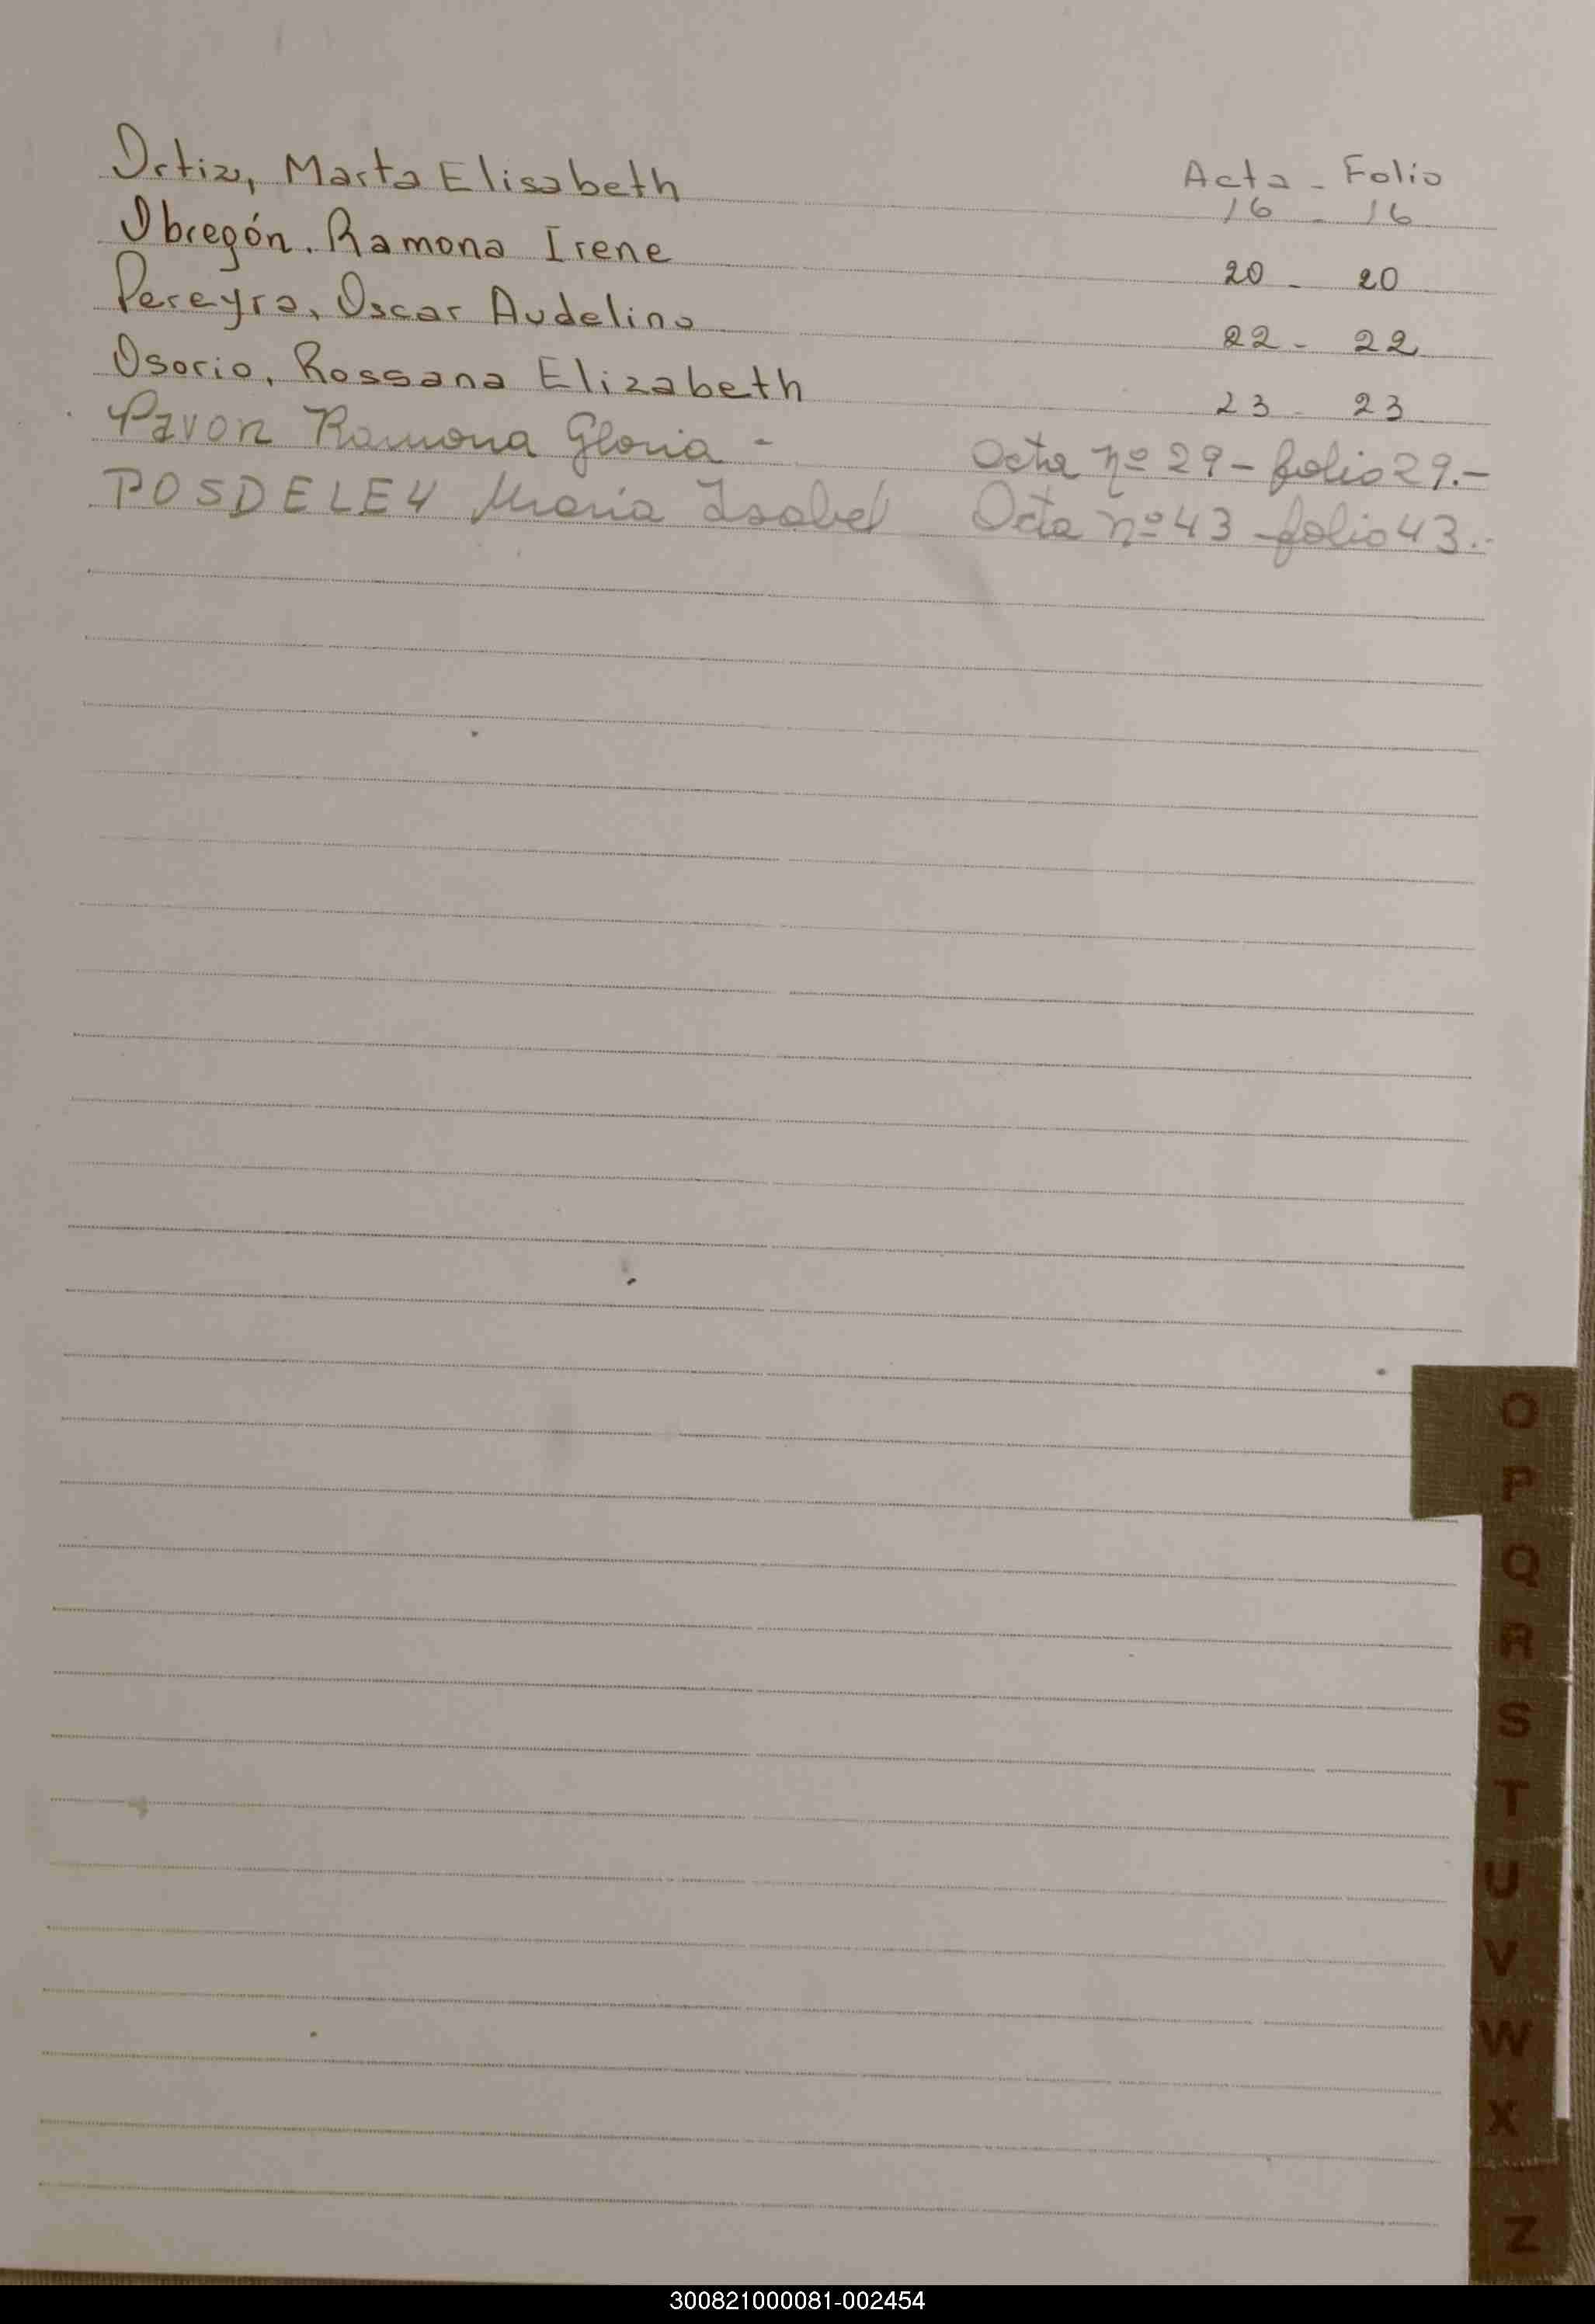 Acta - Folio
Ortiz, Marta Elisabeth 16 - 16
Obregón. Ramona Irene 20 - 20
Pereyra, Oscar Audelino 22 - 22
Osorio, Rossana Elizabeth 23 - 23
Pavon Ramona Gloria - Acta nº 29 - folio 29.-
POSDELEY Maria Isabel Acta nº 43 - folio 43.-
O
P
Q
R
S
T
U
V
W
X
Z
300821000081-002454